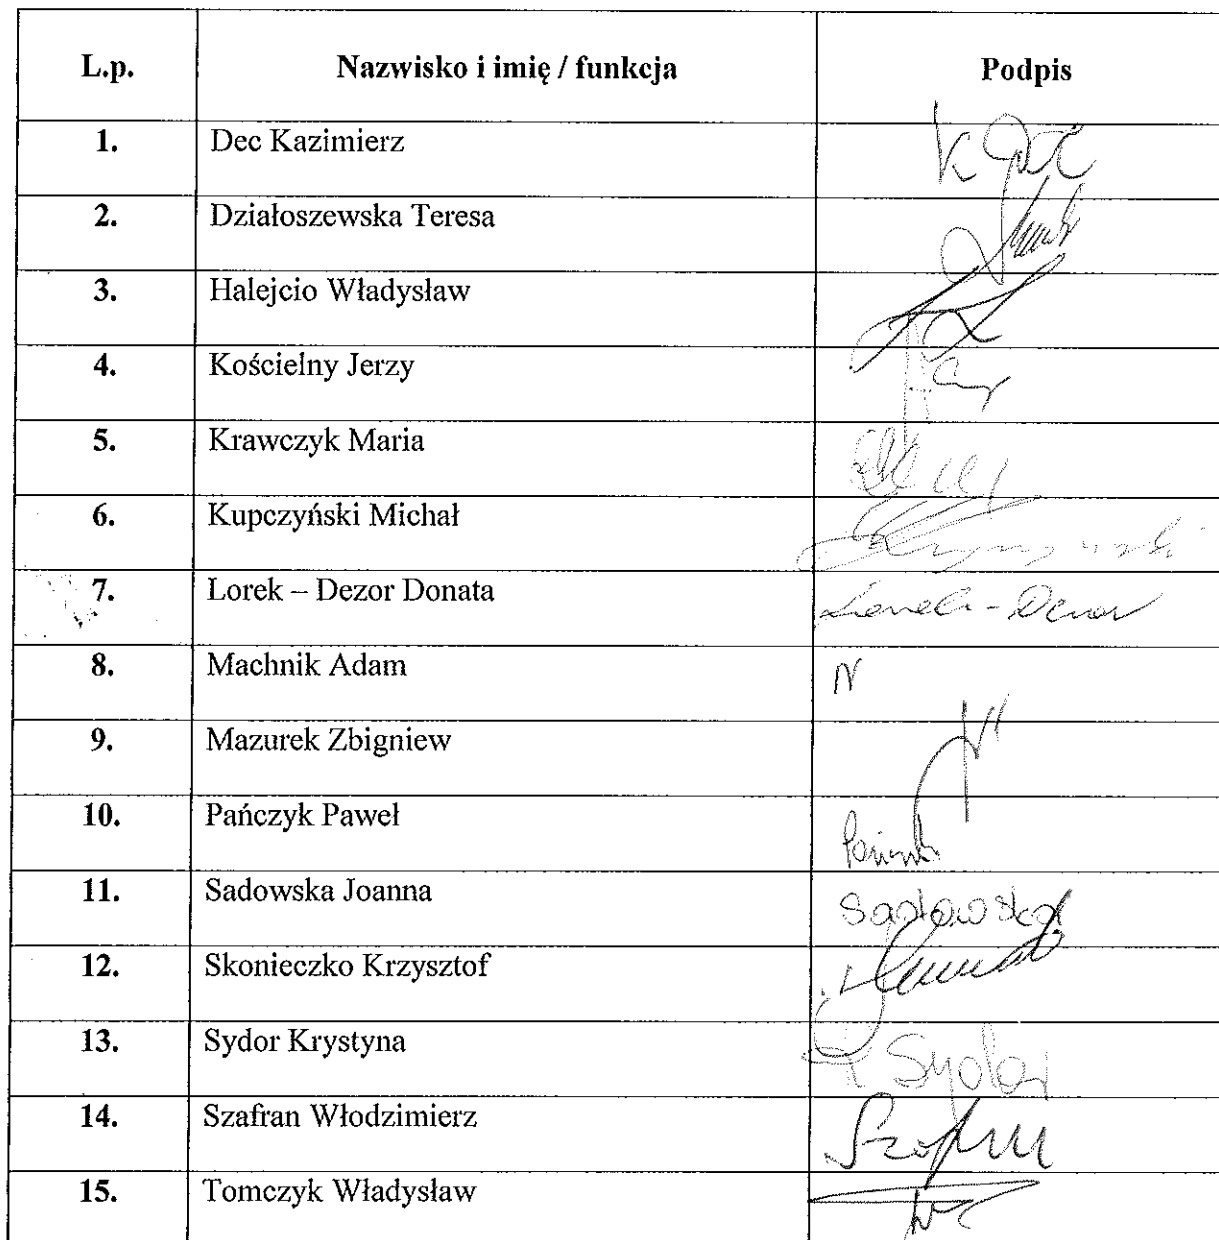 L.p. Nazwisko i imię / funkcja Podpis
1. Dec Kazimierz K Dec
2. Działoszewska Teresa
3. Halejcio Władysław
4. Kościelny Jerzy
5. Krawczyk Maria
6. Kupczyński Michał
7. Lorek – Dezor Donata Lorek - Dezor
8. Machnik Adam N
9. Mazurek Zbigniew
10. Pańczyk Paweł
11. Sadowska Joanna Sadowska
12. Skonieczko Krzysztof
13. Sydor Krystyna Sydor
14. Szafran Włodzimierz
15. Tomczyk Władysław